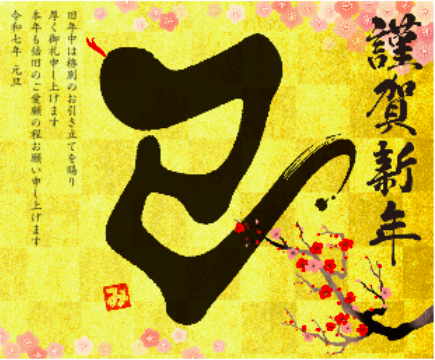 謹賀新年
巳
旧年中は格別のお引き立てを賜り
厚く御礼申し上げます
本年も倍旧のご愛顧の程お願い申し上げます
令和七年 元旦
み